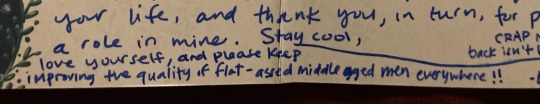 your life, and thank you, in turn, for p
a role in mine. Stay cool,
CRAP
love yourself, and please keep
back isn't
improving the quality of flat-assed middle aged men everywhere!!